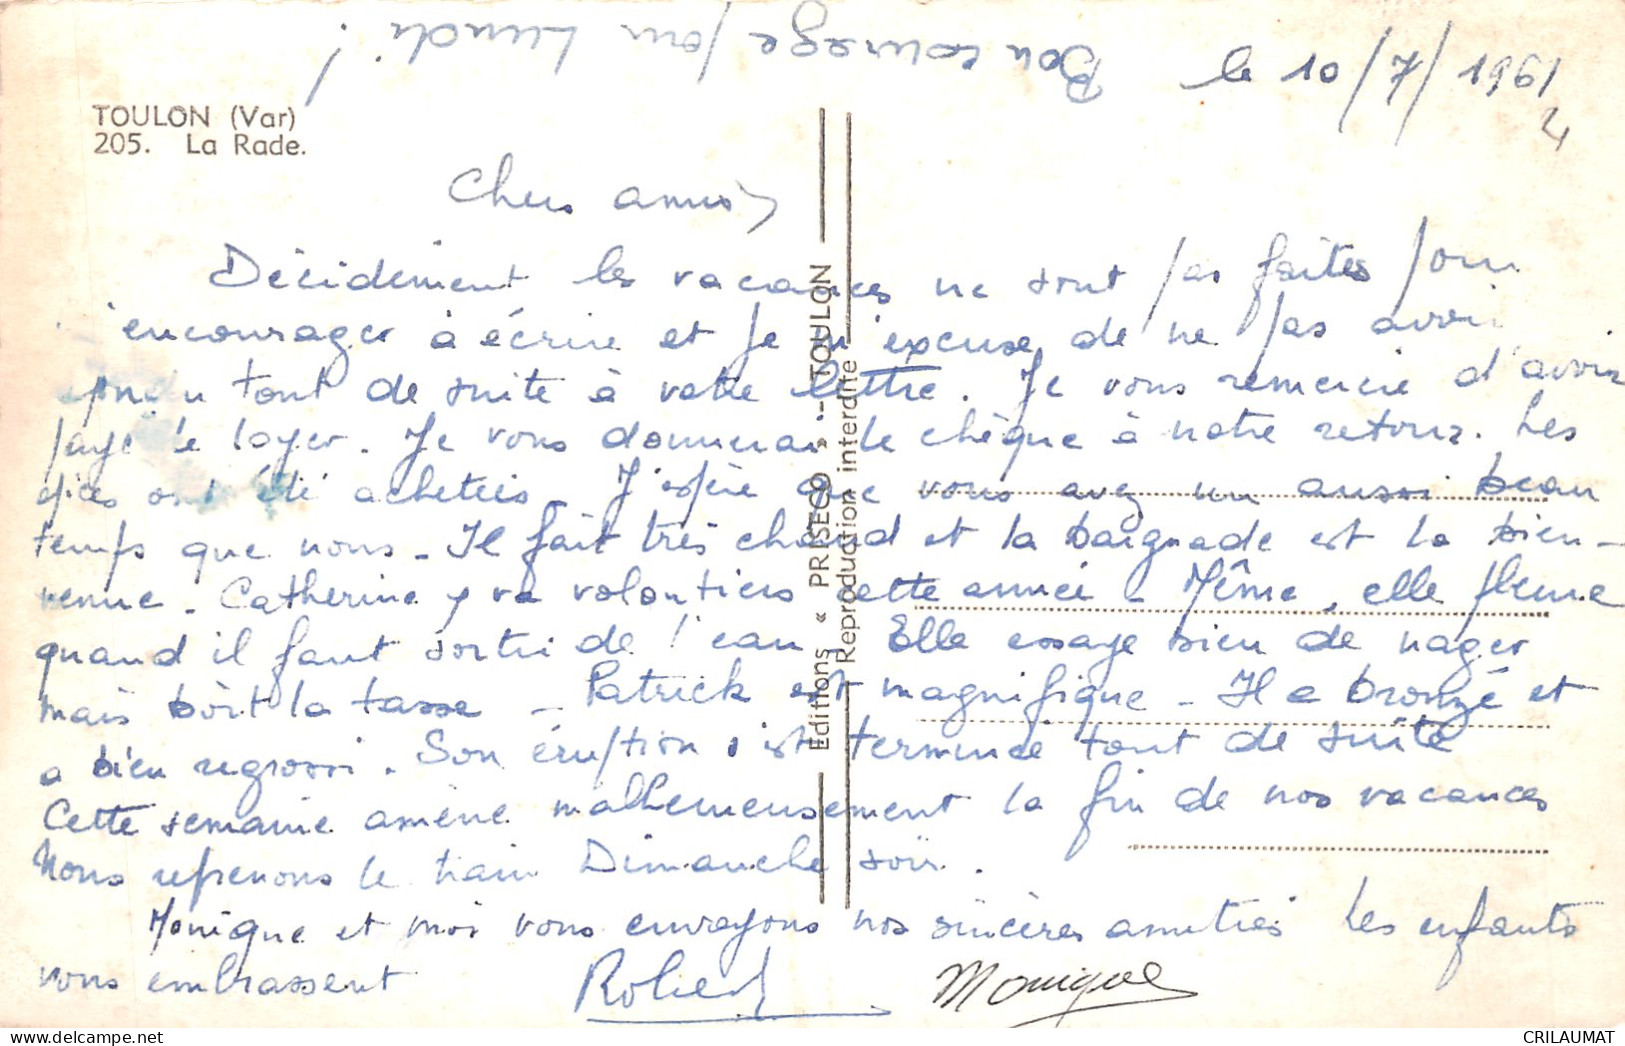 Bon courage pour Lundi !
le 10/7/1961
4
TOULON (Var)
205. La Rade.
Chers amis,
Décidément les vacances ne sont pas faites pour
encourager à écrire et je m'excuse de ne pas avoir
tout de suite à votre lettre. Je vous remercie d'avoir
payé le loyer. Je vous donnerai le chèque à notre retour. Les
ont été achetées. J'espère que vous avez un aussi beau
temps que nous. Il fait très chaud et la baignade est la bien-
venue. Catherine y va volontiers cette année. Même, elle pleure
quand il faut sortir de l'eau. Elle essaye bien de nager
mais boit la tasse. Patrick est magnifique. Il a bronzé et
a bien regrossi. Son éruption s'est terminée tout de suite
Cette semaine amène malheureusement la fin de nos vacances
Nous reprenons le train Dimanche soir.
Monique et moi vous envoyons nos sincères amitiés Les enfants
vous embrassent Robert Monique
Editions « PRISECO » -- TOULON
Reproduction interdite
CRILAUMAT